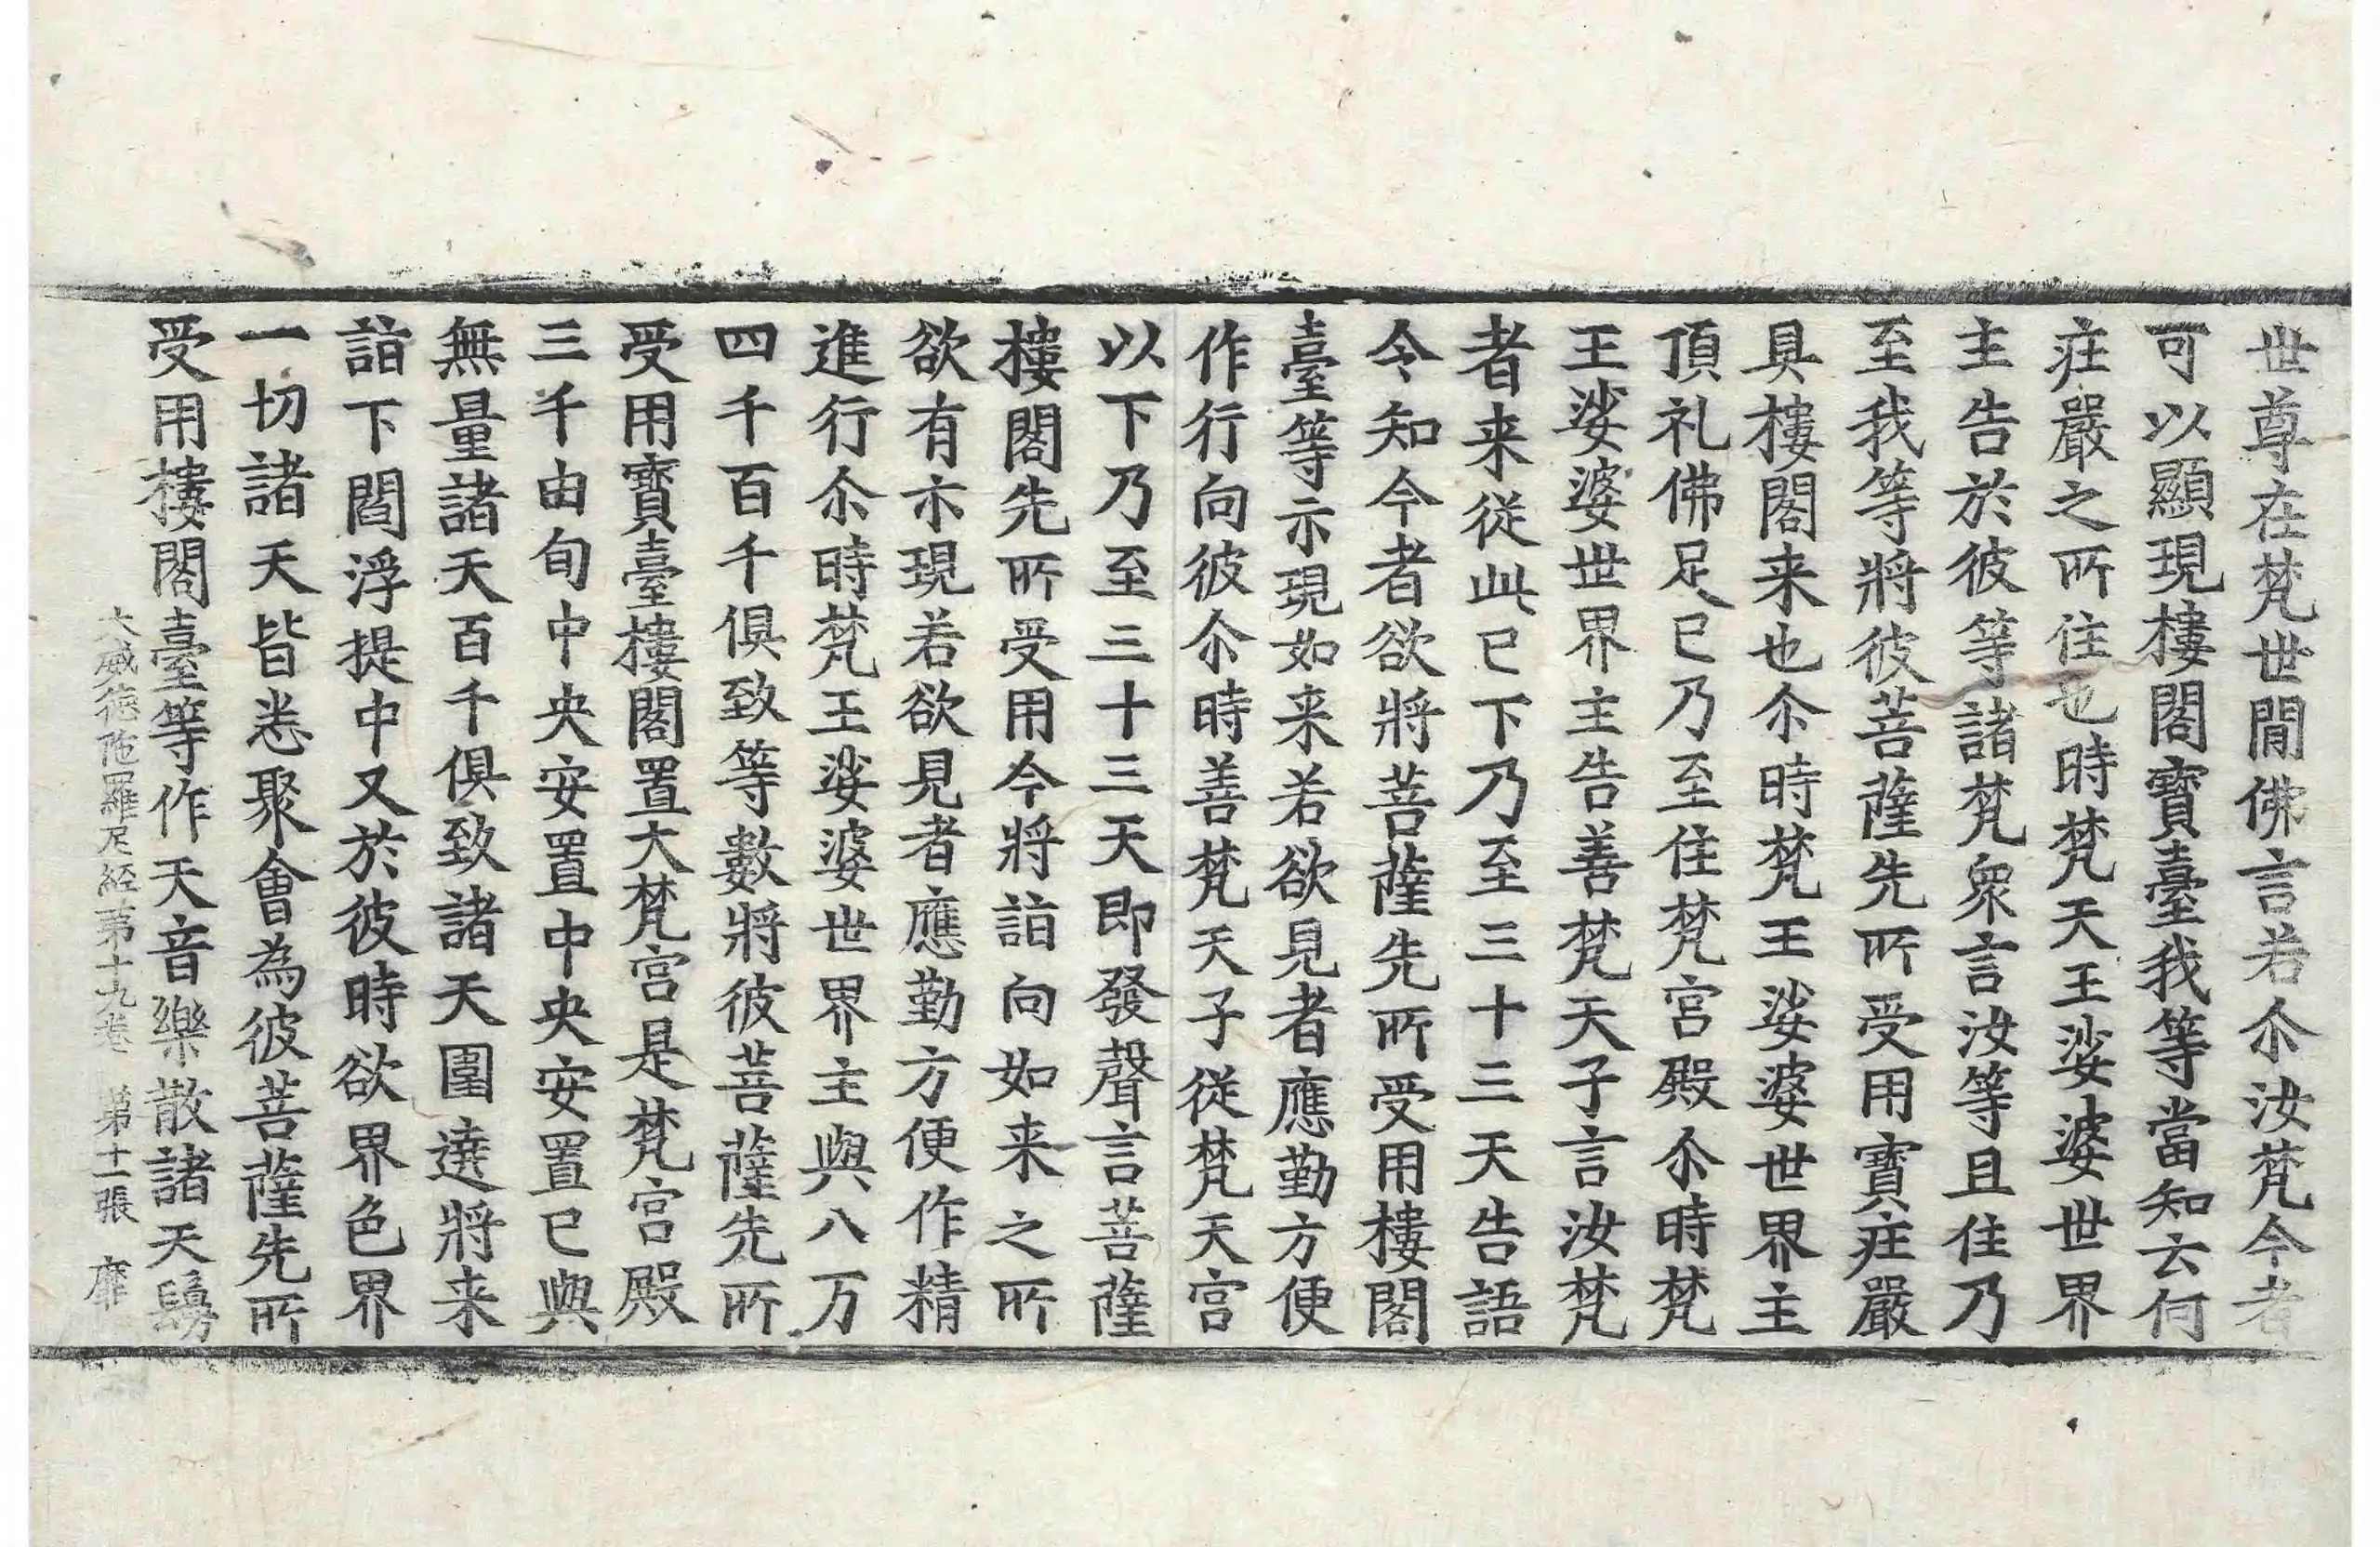 世尊在梵世閒佛言若尒汝梵今者
可以顯現樓閣寶臺我等當知云何
莊嚴之所住也時梵天王娑婆世界
主告於彼等諸梵衆言汝等且住乃
至我等將彼菩薩先所受用寶莊嚴
具樓閣来也尒時梵王娑婆世界主
頂礼佛足已乃至住梵宮殿尒時梵
王娑婆世界主告善梵天子言汝梵
者来從此已下乃至三十三天告語
令知今者欲將菩薩先所受用樓閣
臺等示現如来若欲見者應勤方便
作行向彼尒時善梵天子從梵天宮
以下乃至三十三天即發聲言菩薩
樓閣先所受用今將詣向如来之所
欲有示現若欲見者應勤方便作精
進行尒時梵王娑婆世界主與八万
四千百千俱致等數將彼菩薩先所
受用寶臺樓閣置大梵宮是梵宮殿
三千由旬中央安置中央安置已與
無量諸天百千俱致諸天圍遶將来
詣下閻浮提中又於彼時欲界色界
一切諸天皆悉聚會為彼菩薩先所
受用樓閣臺等作天音樂散諸天鬘
大威德陁羅尼經第十九卷 第十一張 靡